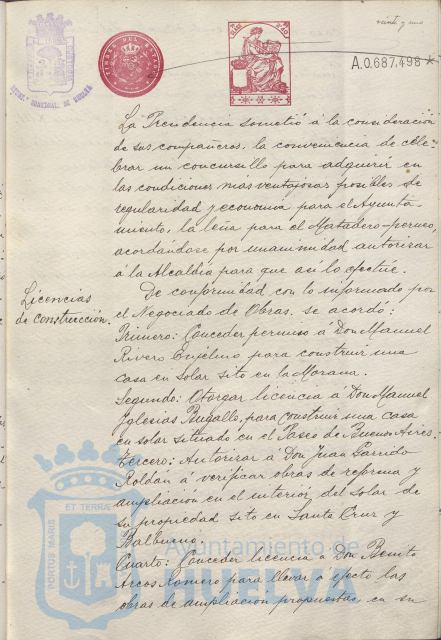 veinte y uno
TIMBRE DEL ESTADO
A.0.687.498 *
La Presidencia sometió á la consideración
de sus compañeros, la conveniencia de cele-
brar un concursillo para adquirir en
las condiciones más ventajosas posibles de
regularidad y economía para el Ayunta-
miento, la leña para el Matadero-
acordándose por unanimidad autorizar
á la Alcaldía para que así lo efectúe.
Licencias
de construcción.
De conformidad con lo informado por
el Negociado de Obras, se acordó:
Primero: Conceder permiso á Don Manuel
Rivero para construir una
casa en solar sito en la Morana.
Segundo: Otorgar licencia á Don Manuel
Iglesias Bugallo, para construir una casa
en solar situado en el Paseo de Buenos Aires.
Tercero: Autorizar á Don Juan Garrido
Roldan á verificar obras de reforma y
ampliación en el interior del solar de
su propiedad sito en Santa Cruz y
Balbueno.
Cuarto: Conceder licencia á Don Benito
Arcos Romero para llevar á efecto las
obras de ampliación propuestas en su
PORTUS MARIS ET TERRÆ
Ayuntamiento de
HUELVA